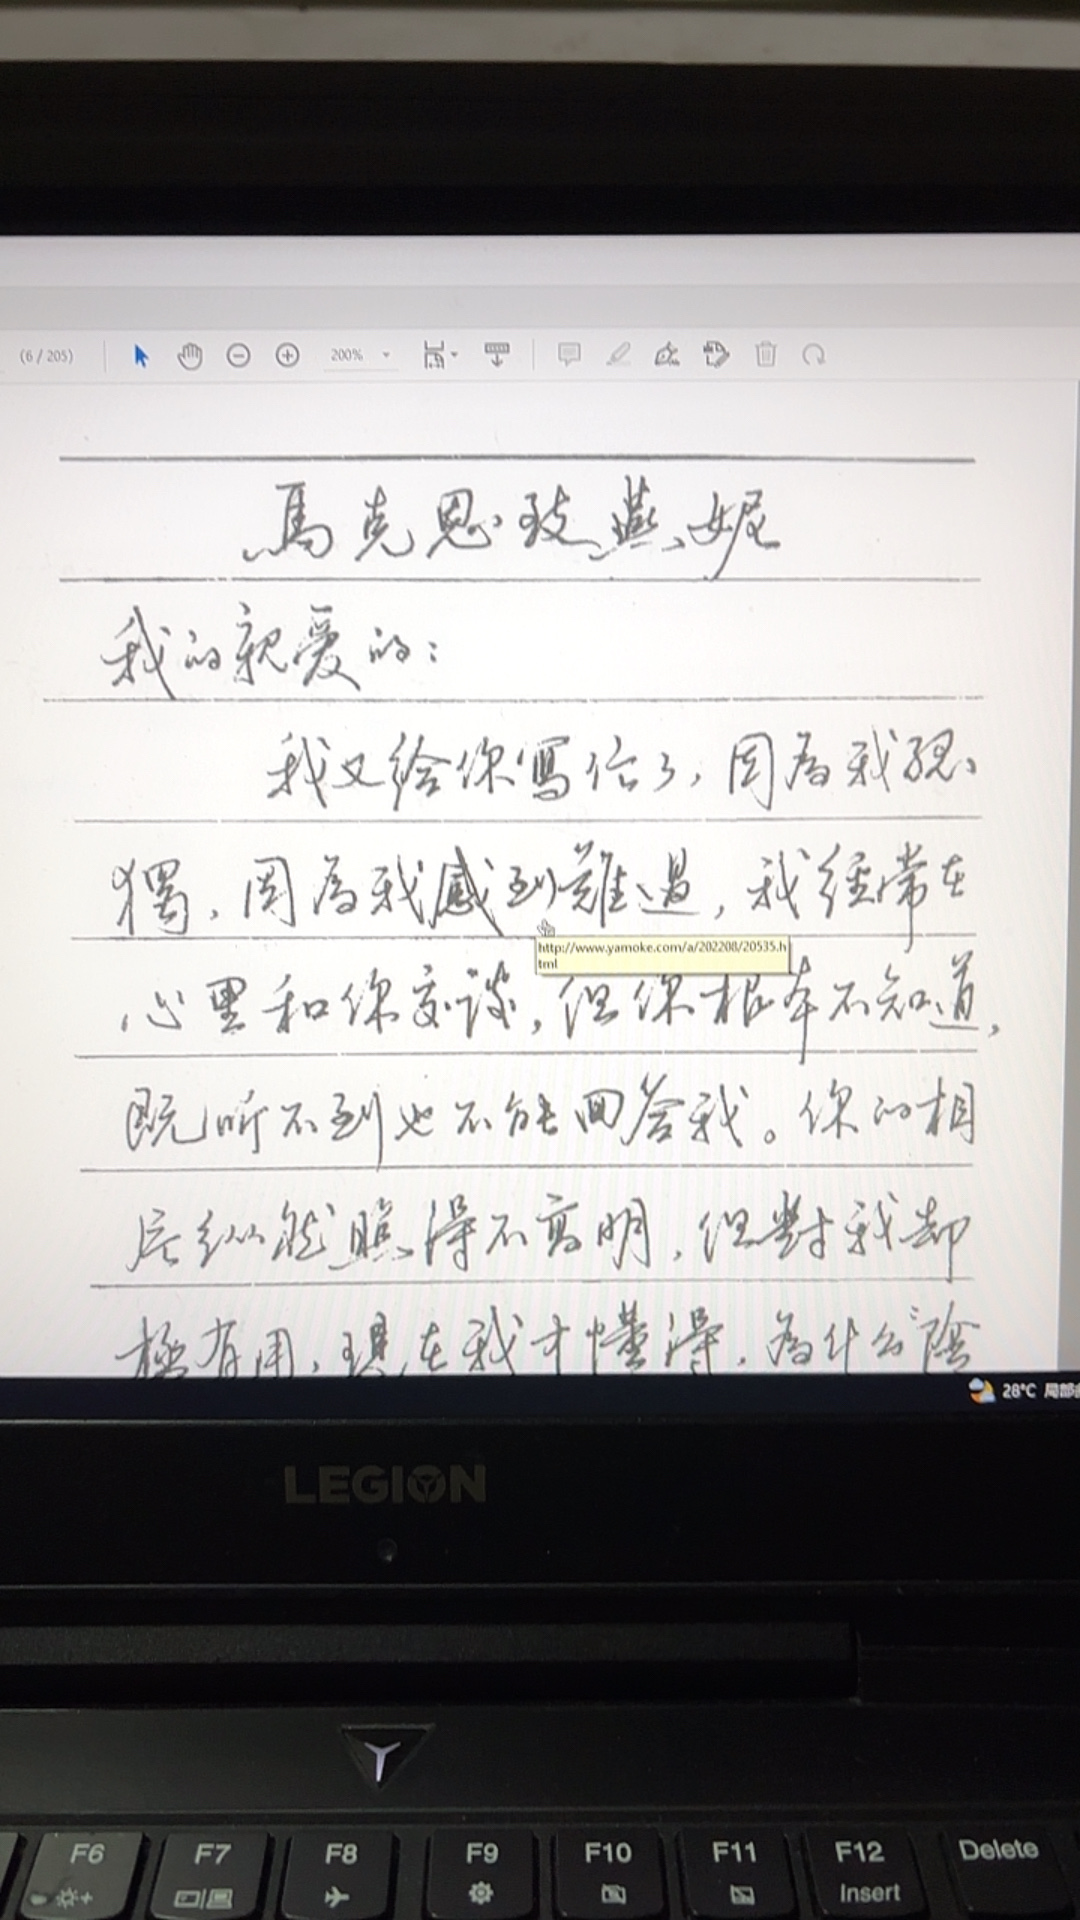 (6 / 205)
200%
馬克思致燕妮
我的親爱的：
我又给你寫信了，因為我孤
獨，因為我感到難過，我經常在
http://www.yamoke.com/a/202208/20535.h
tml
心里和你交谈，但你根本不知道，
既听不到也不能回答我。你的相
片纵然照得不高明，但對我却
極有用，現在我才懂得，為什么“陰
28°C 局部
LEGION
F6 F7 F8 F9 F10 F11 F12 Delete
Insert